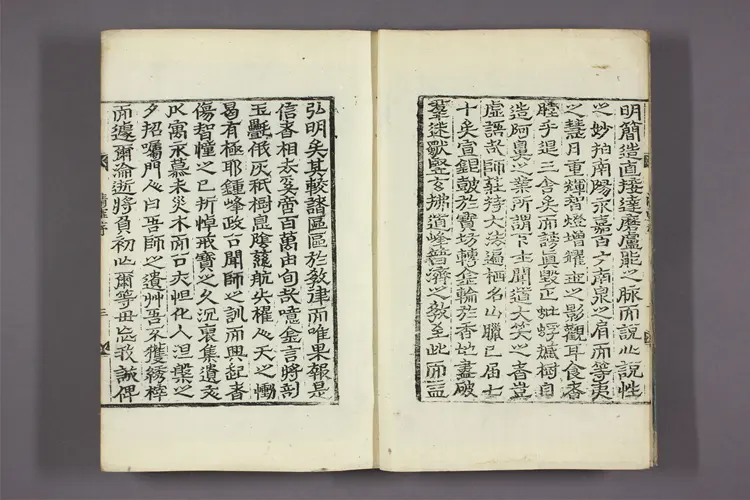 明簡造直接達磨盧能之脉而說心說性
之妙拍南陽永嘉百丈南泉之肩而等夷
之慧月重輝智燈增耀世之影觀耳食者
睦乎退三舍矣而謗眞毁正蚍蜉撼樹自
造阿鼻之業所謂下士聞道大笑之者豈
虛語哉師莊持大法遍栖名山臘已届七
十矣宣鉗皷於寶坊轉金輪於香地盡破
羣迷獸竪玄拂道峰普濟之敎至此而益
弘明矣其較諸區區於敎律而唯果報是
信者相去奚啻百萬由旬哉噫金言將剖
玉毫俄灰祇樹息蔭蘿航失櫂人天之慟
曷有極耶鍾峰政公聞師之訓而興起者
傷智幢之已折悼戒寶之久沉裒集遺文
以寓永慕未災木而公夾怛化人沮槩之
夕招囑門人曰吾師之遺艸吾不獲綉梓
而遽爾淪逝將負初心爾等毋忘我誡俾